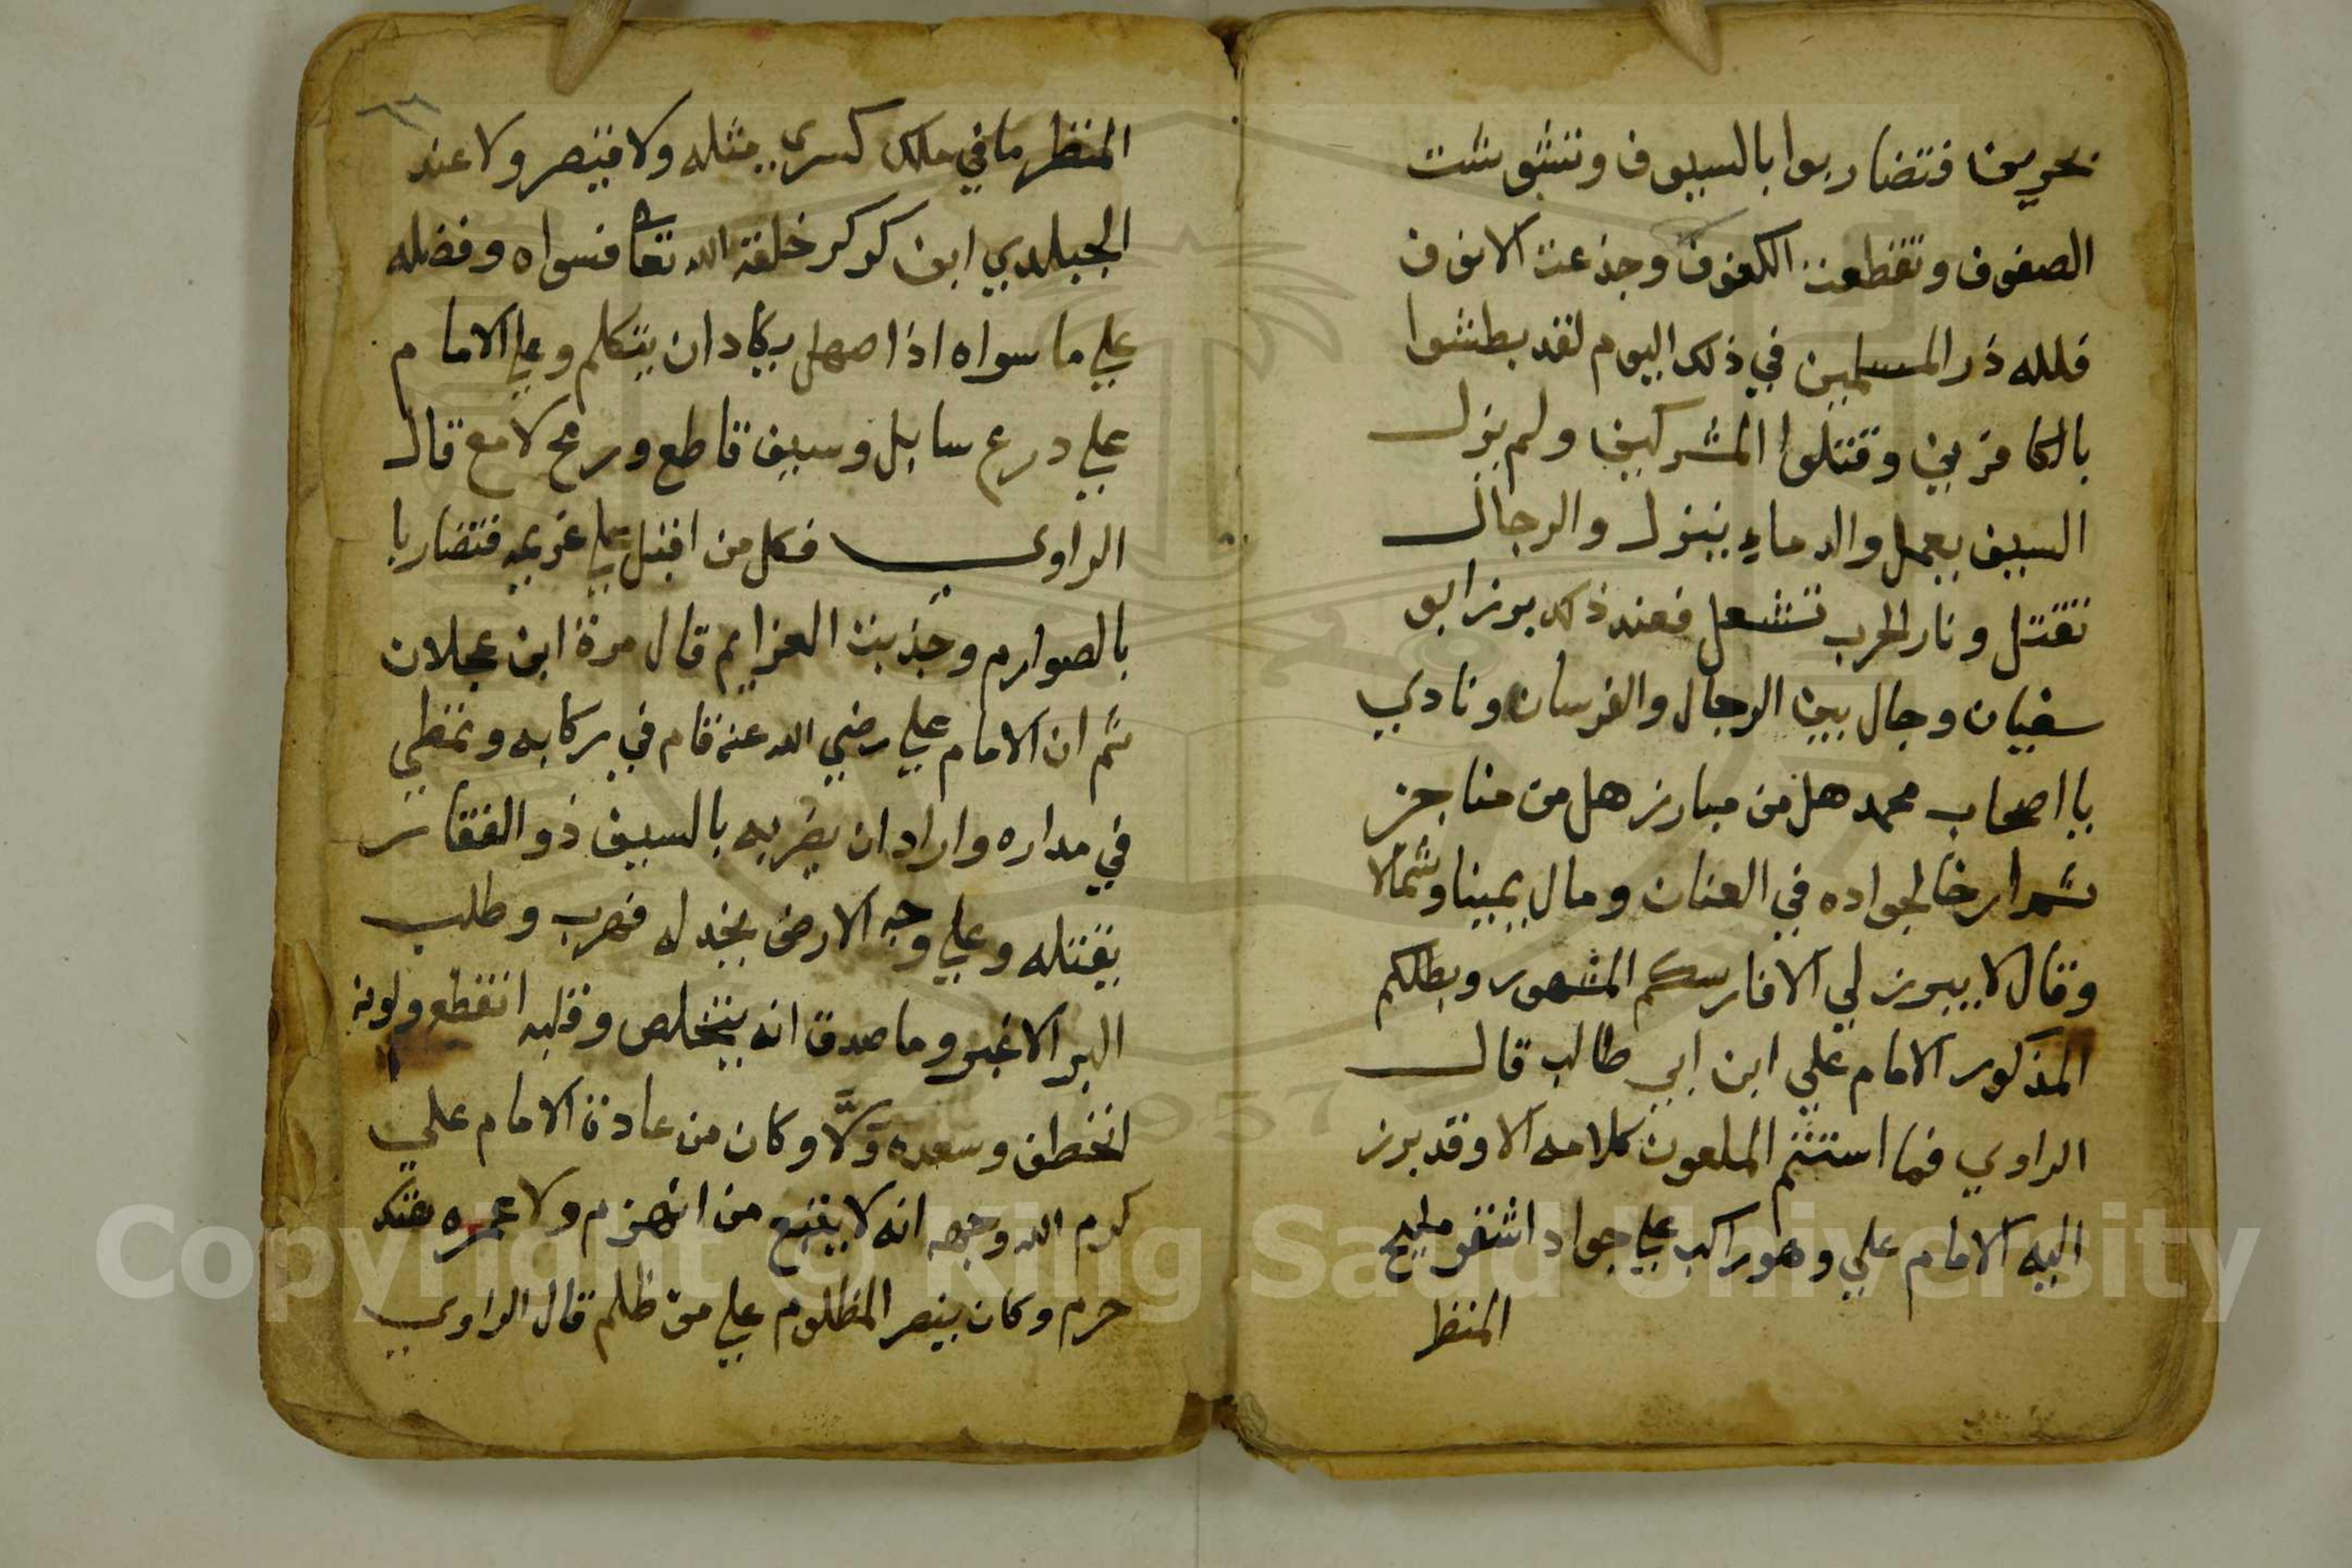 بحرين فتضاربوا بالسيوف وتشوشت
الصفوف وتقطعت الكفوف وجذعت الانوف
فلله ذر المسلمين في ذلك اليوم لقد بطشوا
بالكافرين وقتلوا المشركين ولم يزل
السيف يعمل والدماء ينزل والرجال
تقتل ونار الحرب تشعل فعند ذلك برز ابو
سفيان وجال بين الرجال والفرسان ونادي
يا اصحاب محمد هل من مبارز هل من مناجز
ثم ارخا لجواده في العنان ومال يمينا وشمالا
وقال لا يبرز لي الا فارسكم المشهور وبطلكم
المذكور الامام علي ابن ابي طالب قال
الراوي فما استتم الملعون كلامه الا وقد برز
اليه الامام علي وهو راكب علي جواد اشقر مليح
المنظر
المنظر ما في ملك كسري مثله ولا قيصر ولا عند
الجيلدي ابن كركر خلقه الله تعا فسواه وفضله
علي ما سواه اذا صهل يكاد ان يتكلم وعلي الامام
علي درع سابل وسيف قاطع ورمح لامع قال
الراوي فكل من اقبل علي غريمه فتضاربا
بالصوارم وجذبت العزايم قال مرة ابن عجلان
ثم ان الامام علي رضي الله عنه قام في ركابه وتمطي
في مداره واراد ان يضربه بالسيف ذو الفقار
يقتله وعلي وجه الارض يجندله فهرب وطلب
البر الاغبر وما صدق انه يتخلص وقلبه انقطع ولونه
انخطف وسعده ولا وكان من عادة الامام علي
كرم الله وجهه انه لا يتبع من انهزم ولا عمره هتك
حرم وكان ينصر المظلوم علي من ظلم قال الراوي
Copyright © King Saud University
1957